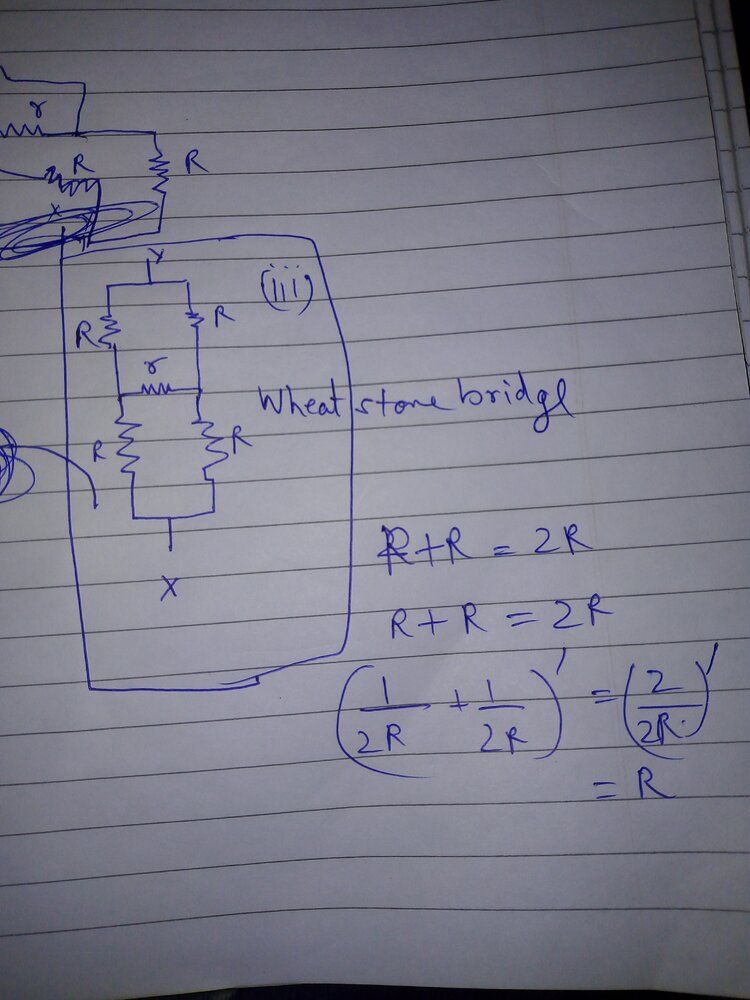 r
R
R
X
Y
(iii)
R
R
r
Wheat stone bridge
R
R
R+R = 2R
X
R+R = 2R
(1/2R + 1/2R)' = (2/2R.)'
= R